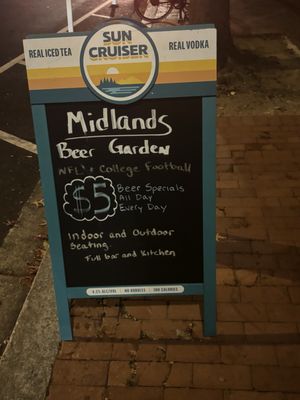 SUN
CRUISER
REAL ICED TEA
REAL VODKA
Midlands
Beer Garden
NFL + College Football
$5 Beer Specials
All Day
Every Day
Indoor and Outdoor
Seating.
Full bar and Kitchen
4.5% ALC/VOL | NO BUBBLES | 100 CALORIES